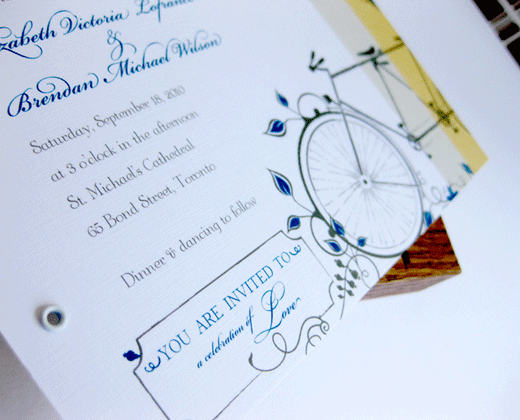 Victoria Lofranco
&
Brendan Michael Wilson
Saturday, September 18, 2010
at 3 o'clock in the afternoon
St. Michael's Cathedral
65 Bond Street, Toronto
Dinner & dancing to follow
YOU ARE INVITED TO
a celebration of Love